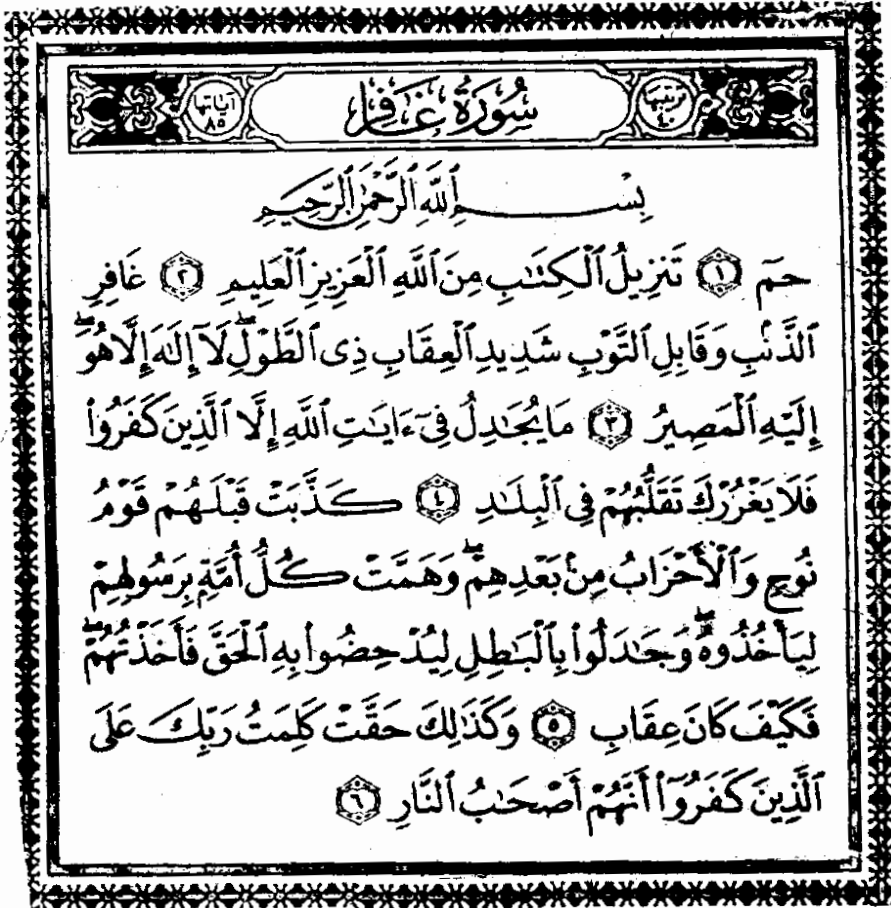 ترتيبها ٤٠ سُورَةُ غَافِرٍ آياتها ٨٥
بِسْمِ ٱللَّهِ ٱلرَّحْمَٰنِ ٱلرَّحِيمِ
حمٓ ١ تَنزِيلُ ٱلْكِتَٰبِ مِنَ ٱللَّهِ ٱلْعَزِيزِ ٱلْعَلِيمِ ٢ غَافِرِ
ٱلذَّنۢبِ وَقَابِلِ ٱلتَّوْبِ شَدِيدِ ٱلْعِقَابِ ذِى ٱلطَّوْلِۖ لَآ إِلَٰهَ إِلَّا هُوَۖ
إِلَيْهِ ٱلْمَصِيرُ ٣ مَا يُجَٰدِلُ فِىٓ ءَايَٰتِ ٱللَّهِ إِلَّا ٱلَّذِينَ كَفَرُوا۟
فَلَا يَغْرُرْكَ تَقَلُّبُهُمْ فِى ٱلْبِلَٰدِ ٤ كَذَّبَتْ قَبْلَهُمْ قَوْمُ
نُوحٍ وَٱلْأَحْزَابُ مِنۢ بَعْدِهِمْۖ وَهَمَّتْ كُلُّ أُمَّةٍۭ بِرَسُولِهِمْ
لِيَأْخُذُوهُۖ وَجَٰدَلُوا۟ بِٱلْبَٰطِلِ لِيُدْحِضُوا۟ بِهِ ٱلْحَقَّ فَأَخَذْتُهُمْۖ
فَكَيْفَ كَانَ عِقَابِ ٥ وَكَذَٰلِكَ حَقَّتْ كَلِمَتُ رَبِّكَ عَلَى
ٱلَّذِينَ كَفَرُوٓا۟ أَنَّهُمْ أَصْحَٰبُ ٱلنَّارِ ٦